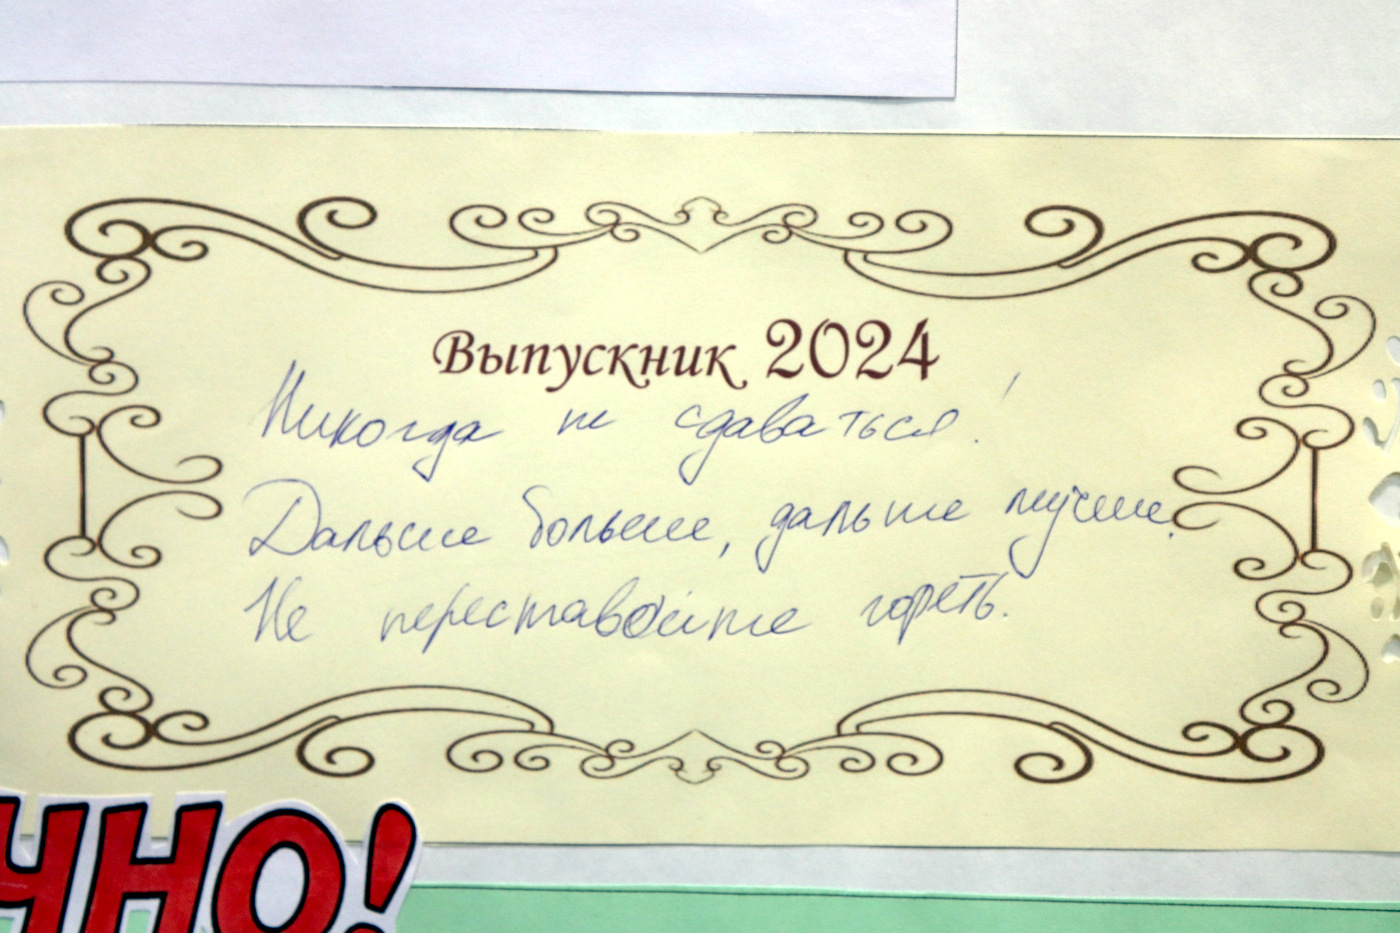 Выпускник 2024
Никогда не сдаваться!
Дальше больше, дальше лучше.
Не переставайте гореть.
ЧНО!